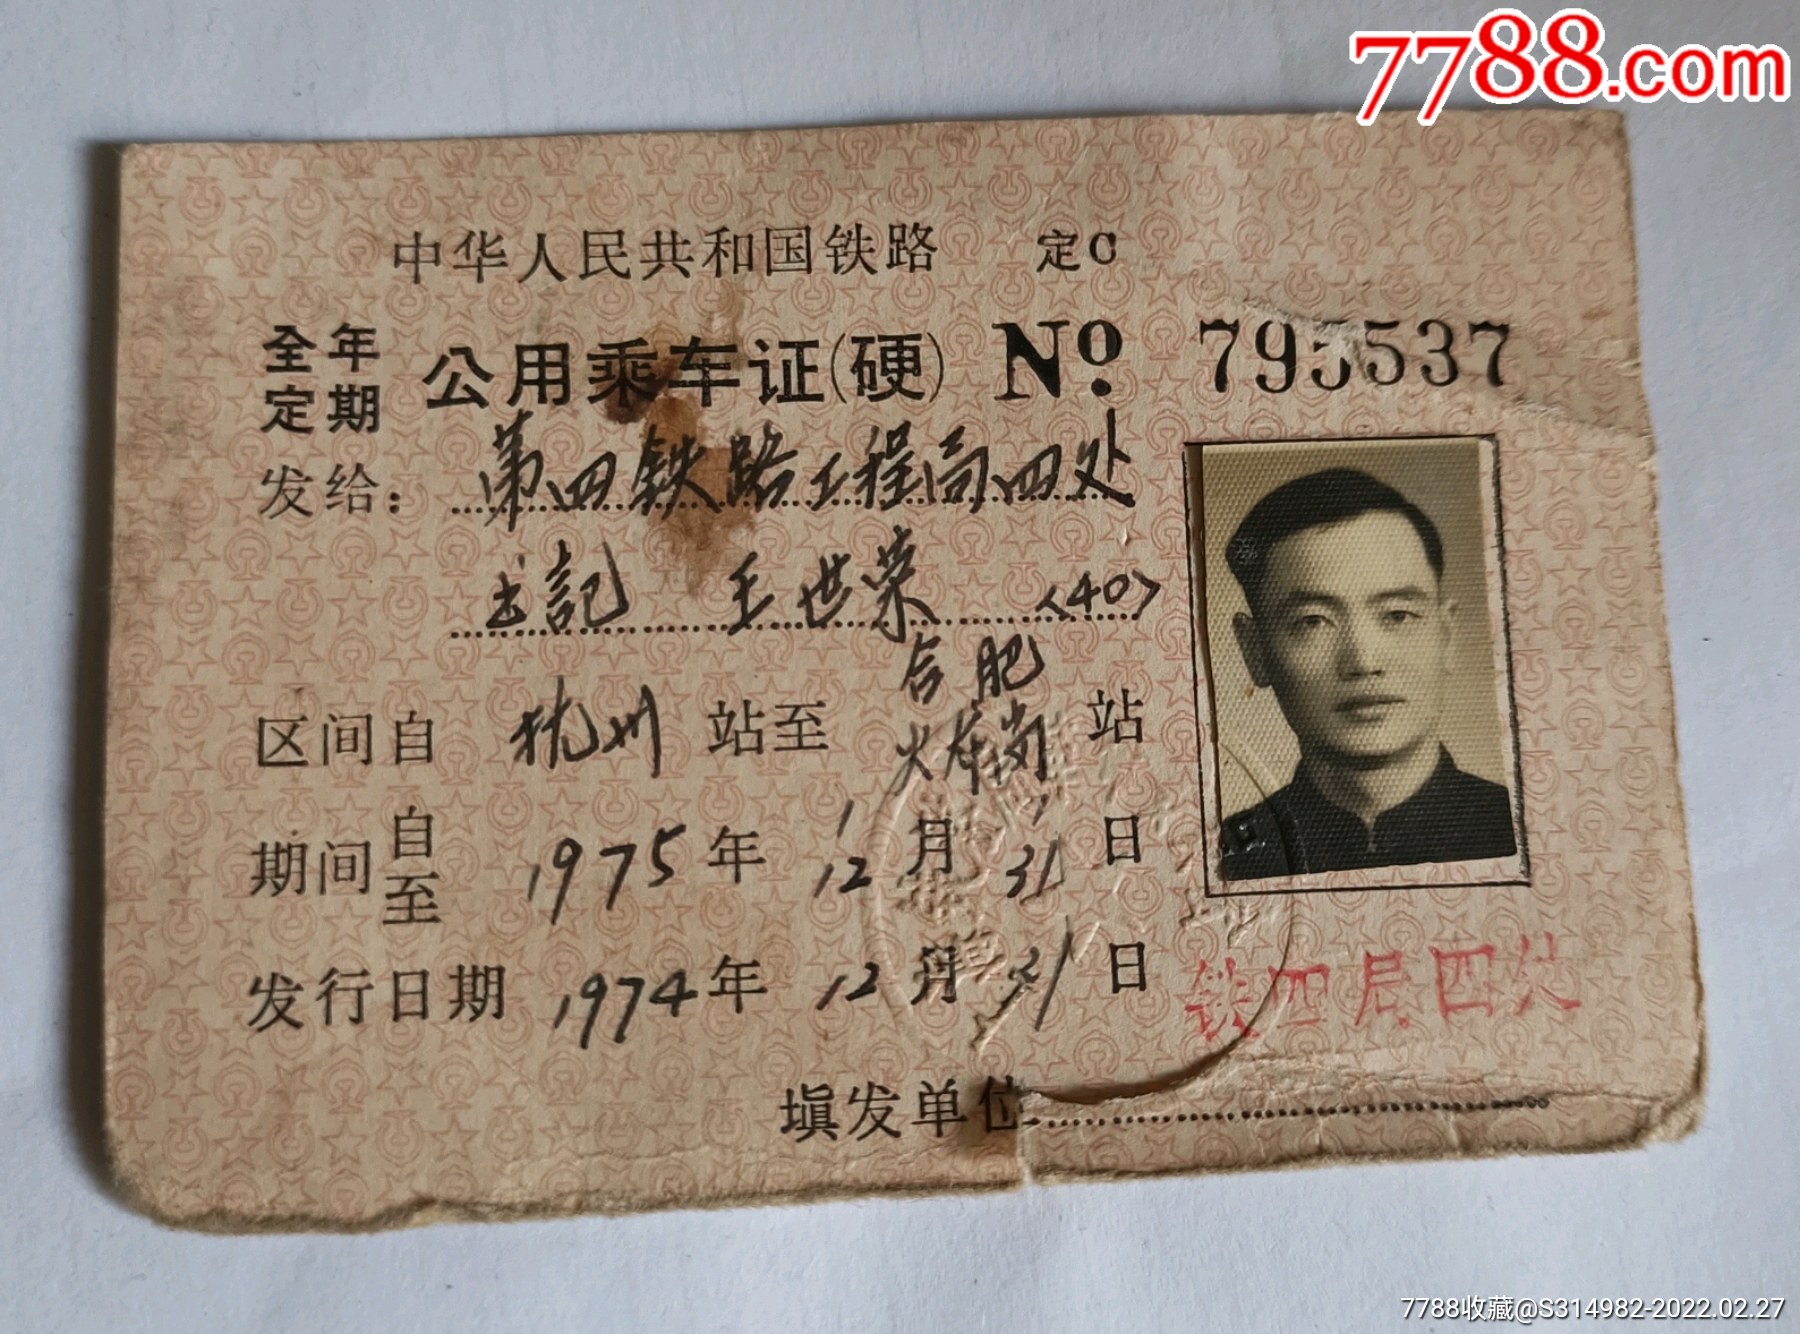 7788.com
中华人民共和国铁路 定C
全年定期 公用乘车证(硬) No. 795537
发给：第四铁路工程局四处
书記 王世荣 <40>
合肥
区间自 杭州 站至 火龙岗 站
期间 自 至 1975年 1 12月 1 31日
发行日期 1974年12月31日
铁四局四处
填发单位
7788收藏@S314982-2022.02.27